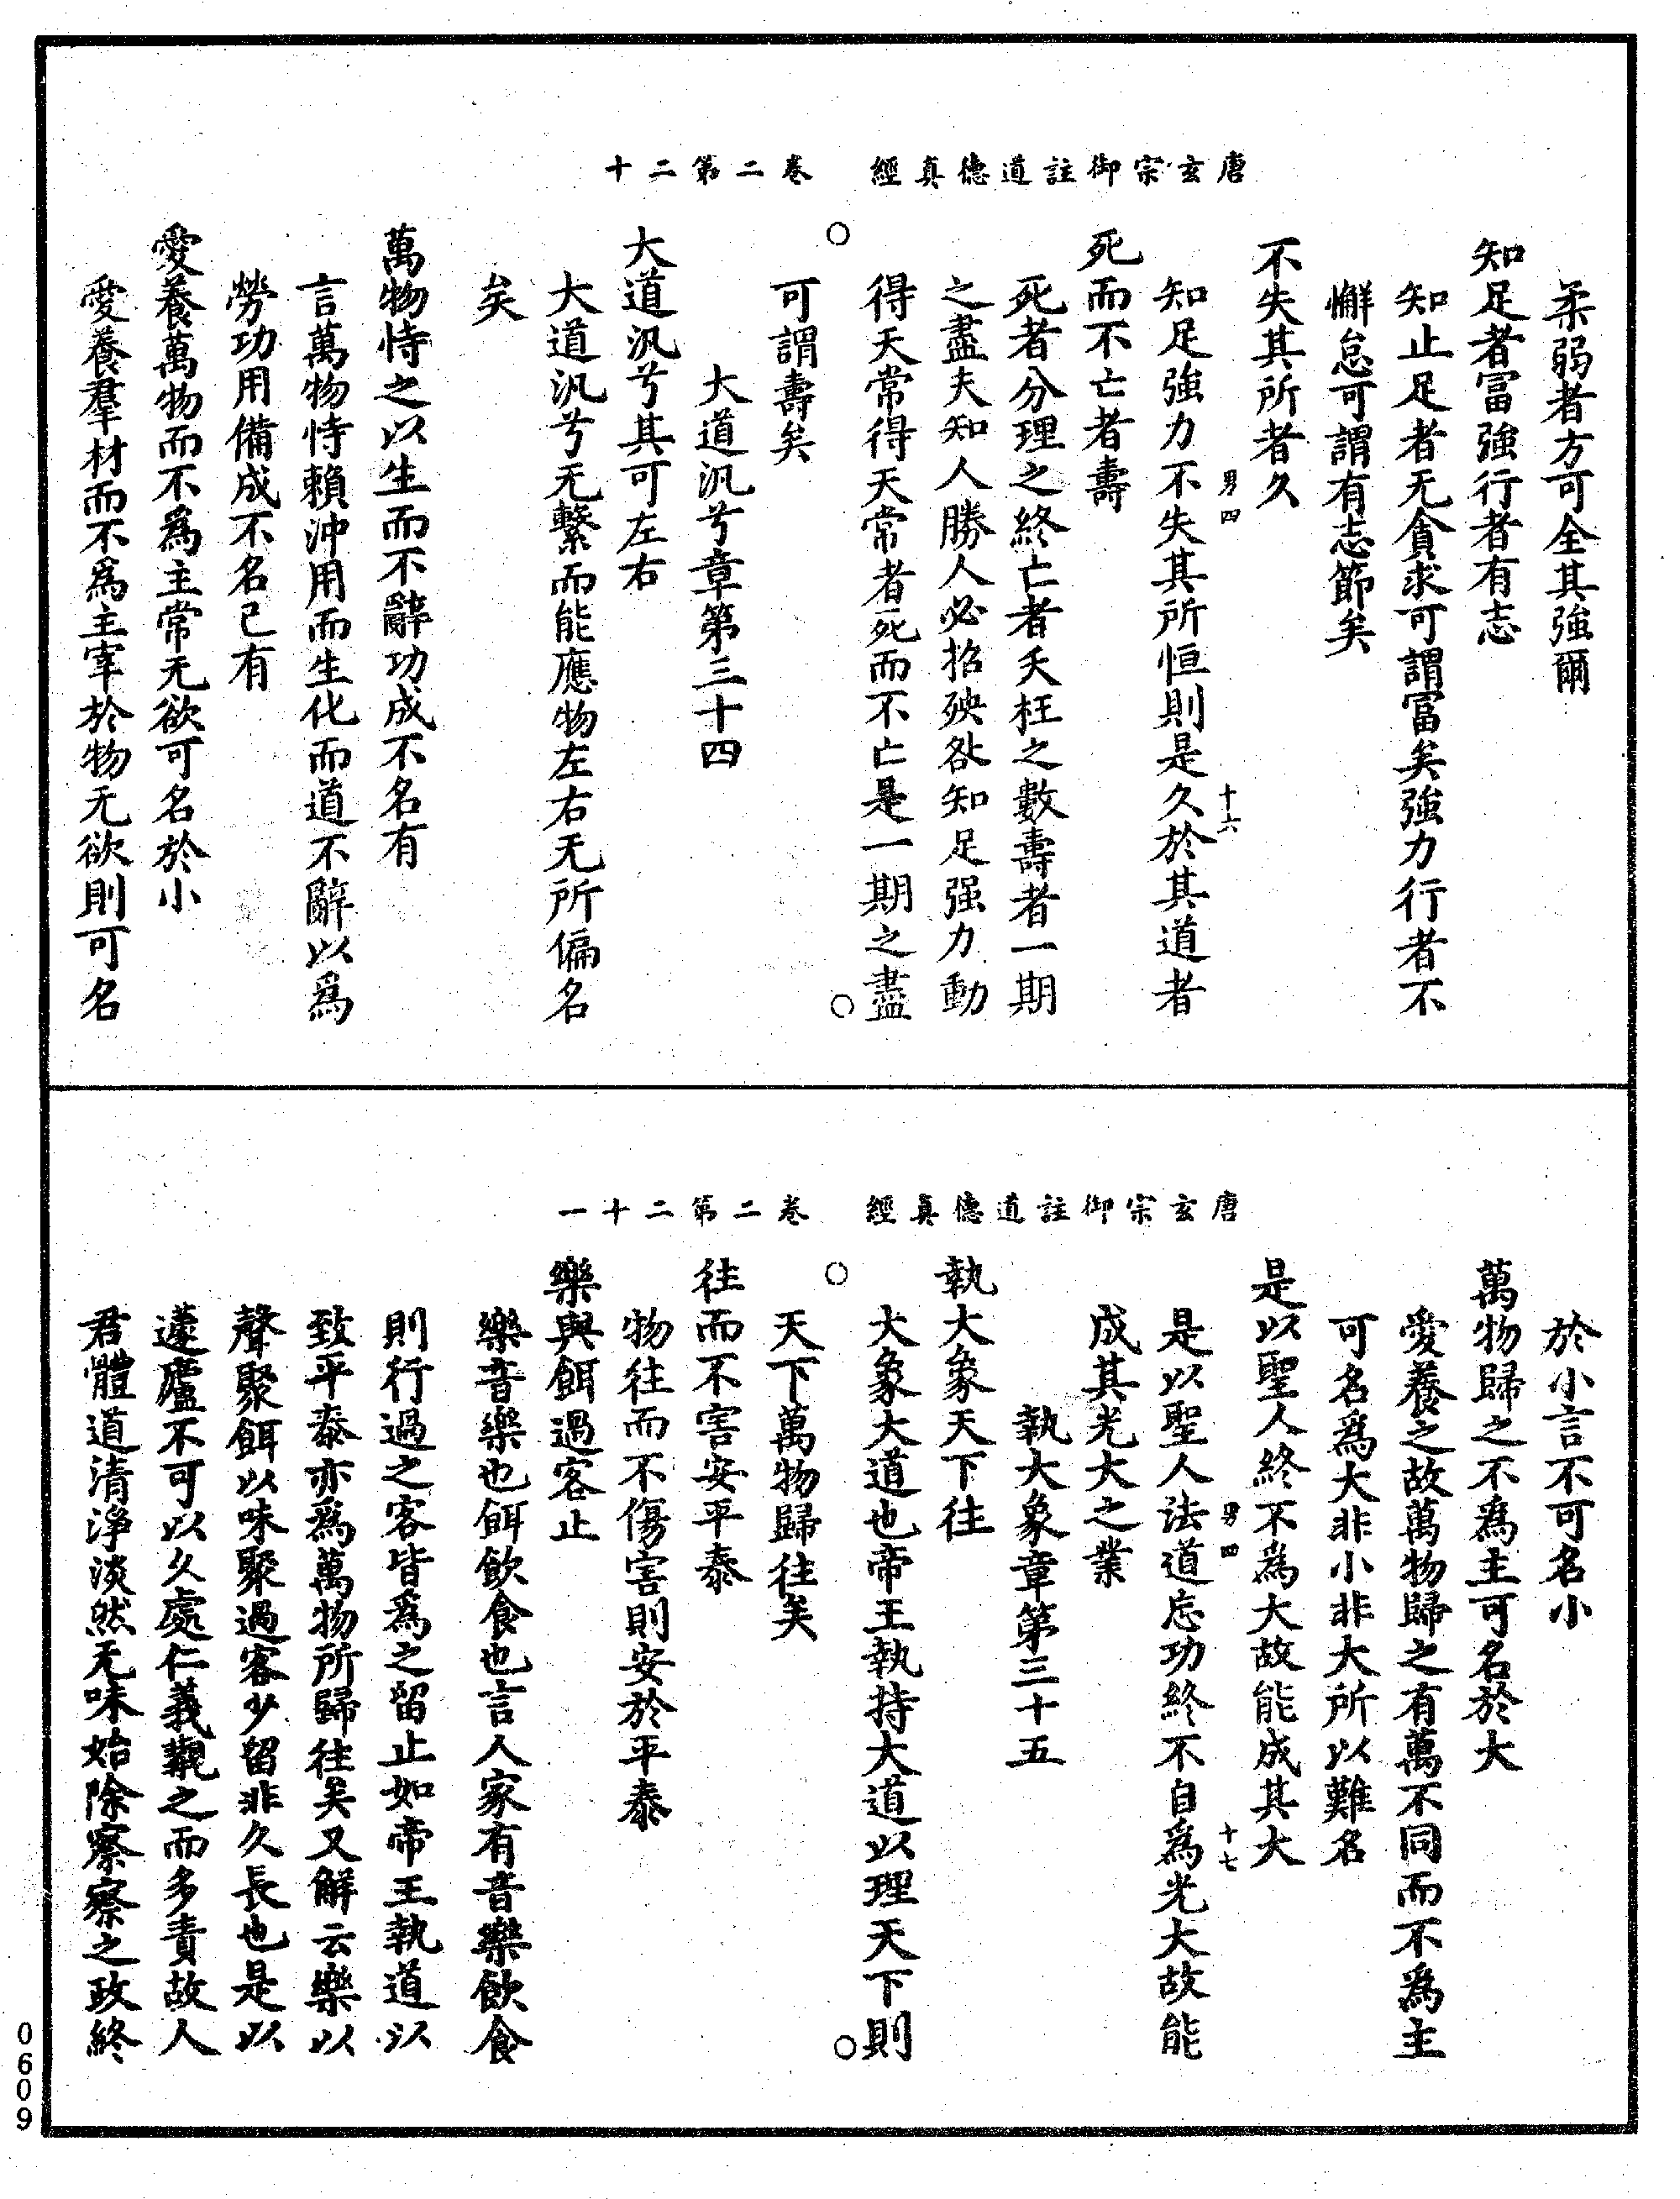 唐玄宗御註道德真經　卷二第二十
柔弱者方可全其強爾
知足者富強行者有志
知止足者无貪求可謂富矣強力行者不
懈怠可謂有志節矣
不失其所者久
男四　十六
知足強力不失其所恒則是久於其道者
死而不亡者壽
死者分理之終亡者夭枉之數壽者一期
之盡夫知人勝人必招殃咎知足强力動
得天常得天常者死而不亡是一期之盡
○　○
可謂壽矣
大道汎兮章第三十四
大道汎兮其可左右
大道汎兮无繫而能應物左右无所偏名
矣
萬物恃之以生而不辭功成不名有
言萬物恃賴沖用而生化而道不辭以爲
勞功用備成不名已有
愛養萬物而不爲主常无欲可名於小
愛養羣材而不爲主宰於物无欲則可名
唐玄宗御註道德真經　卷二第二十一
於小言不可名小
萬物歸之不爲主可名於大
愛養之故萬物歸之有萬不同而不爲主
可名爲大非小非大所以難名
是以聖人終不爲大故能成其大
男四　十七
是以聖人法道忘功終不自爲光大故能
成其光大之業
執大象章第三十五
執大象天下往
大象大道也帝王執持大道以理天下則
○　○
天下萬物歸往矣
往而不害安平泰
物往而不傷害則安於平泰
樂與餌過客止
樂音樂也餌飲食也言人家有音樂飲食
則行過之客皆爲之留止如帝王執道以
致平泰亦爲萬物所歸往矣又解云樂以
聲聚餌以味聚過客少留非久長也是以
蘧廬不可以久處仁義覯之而多責故人
君體道清淨淡然无味始除察察之政終
0609